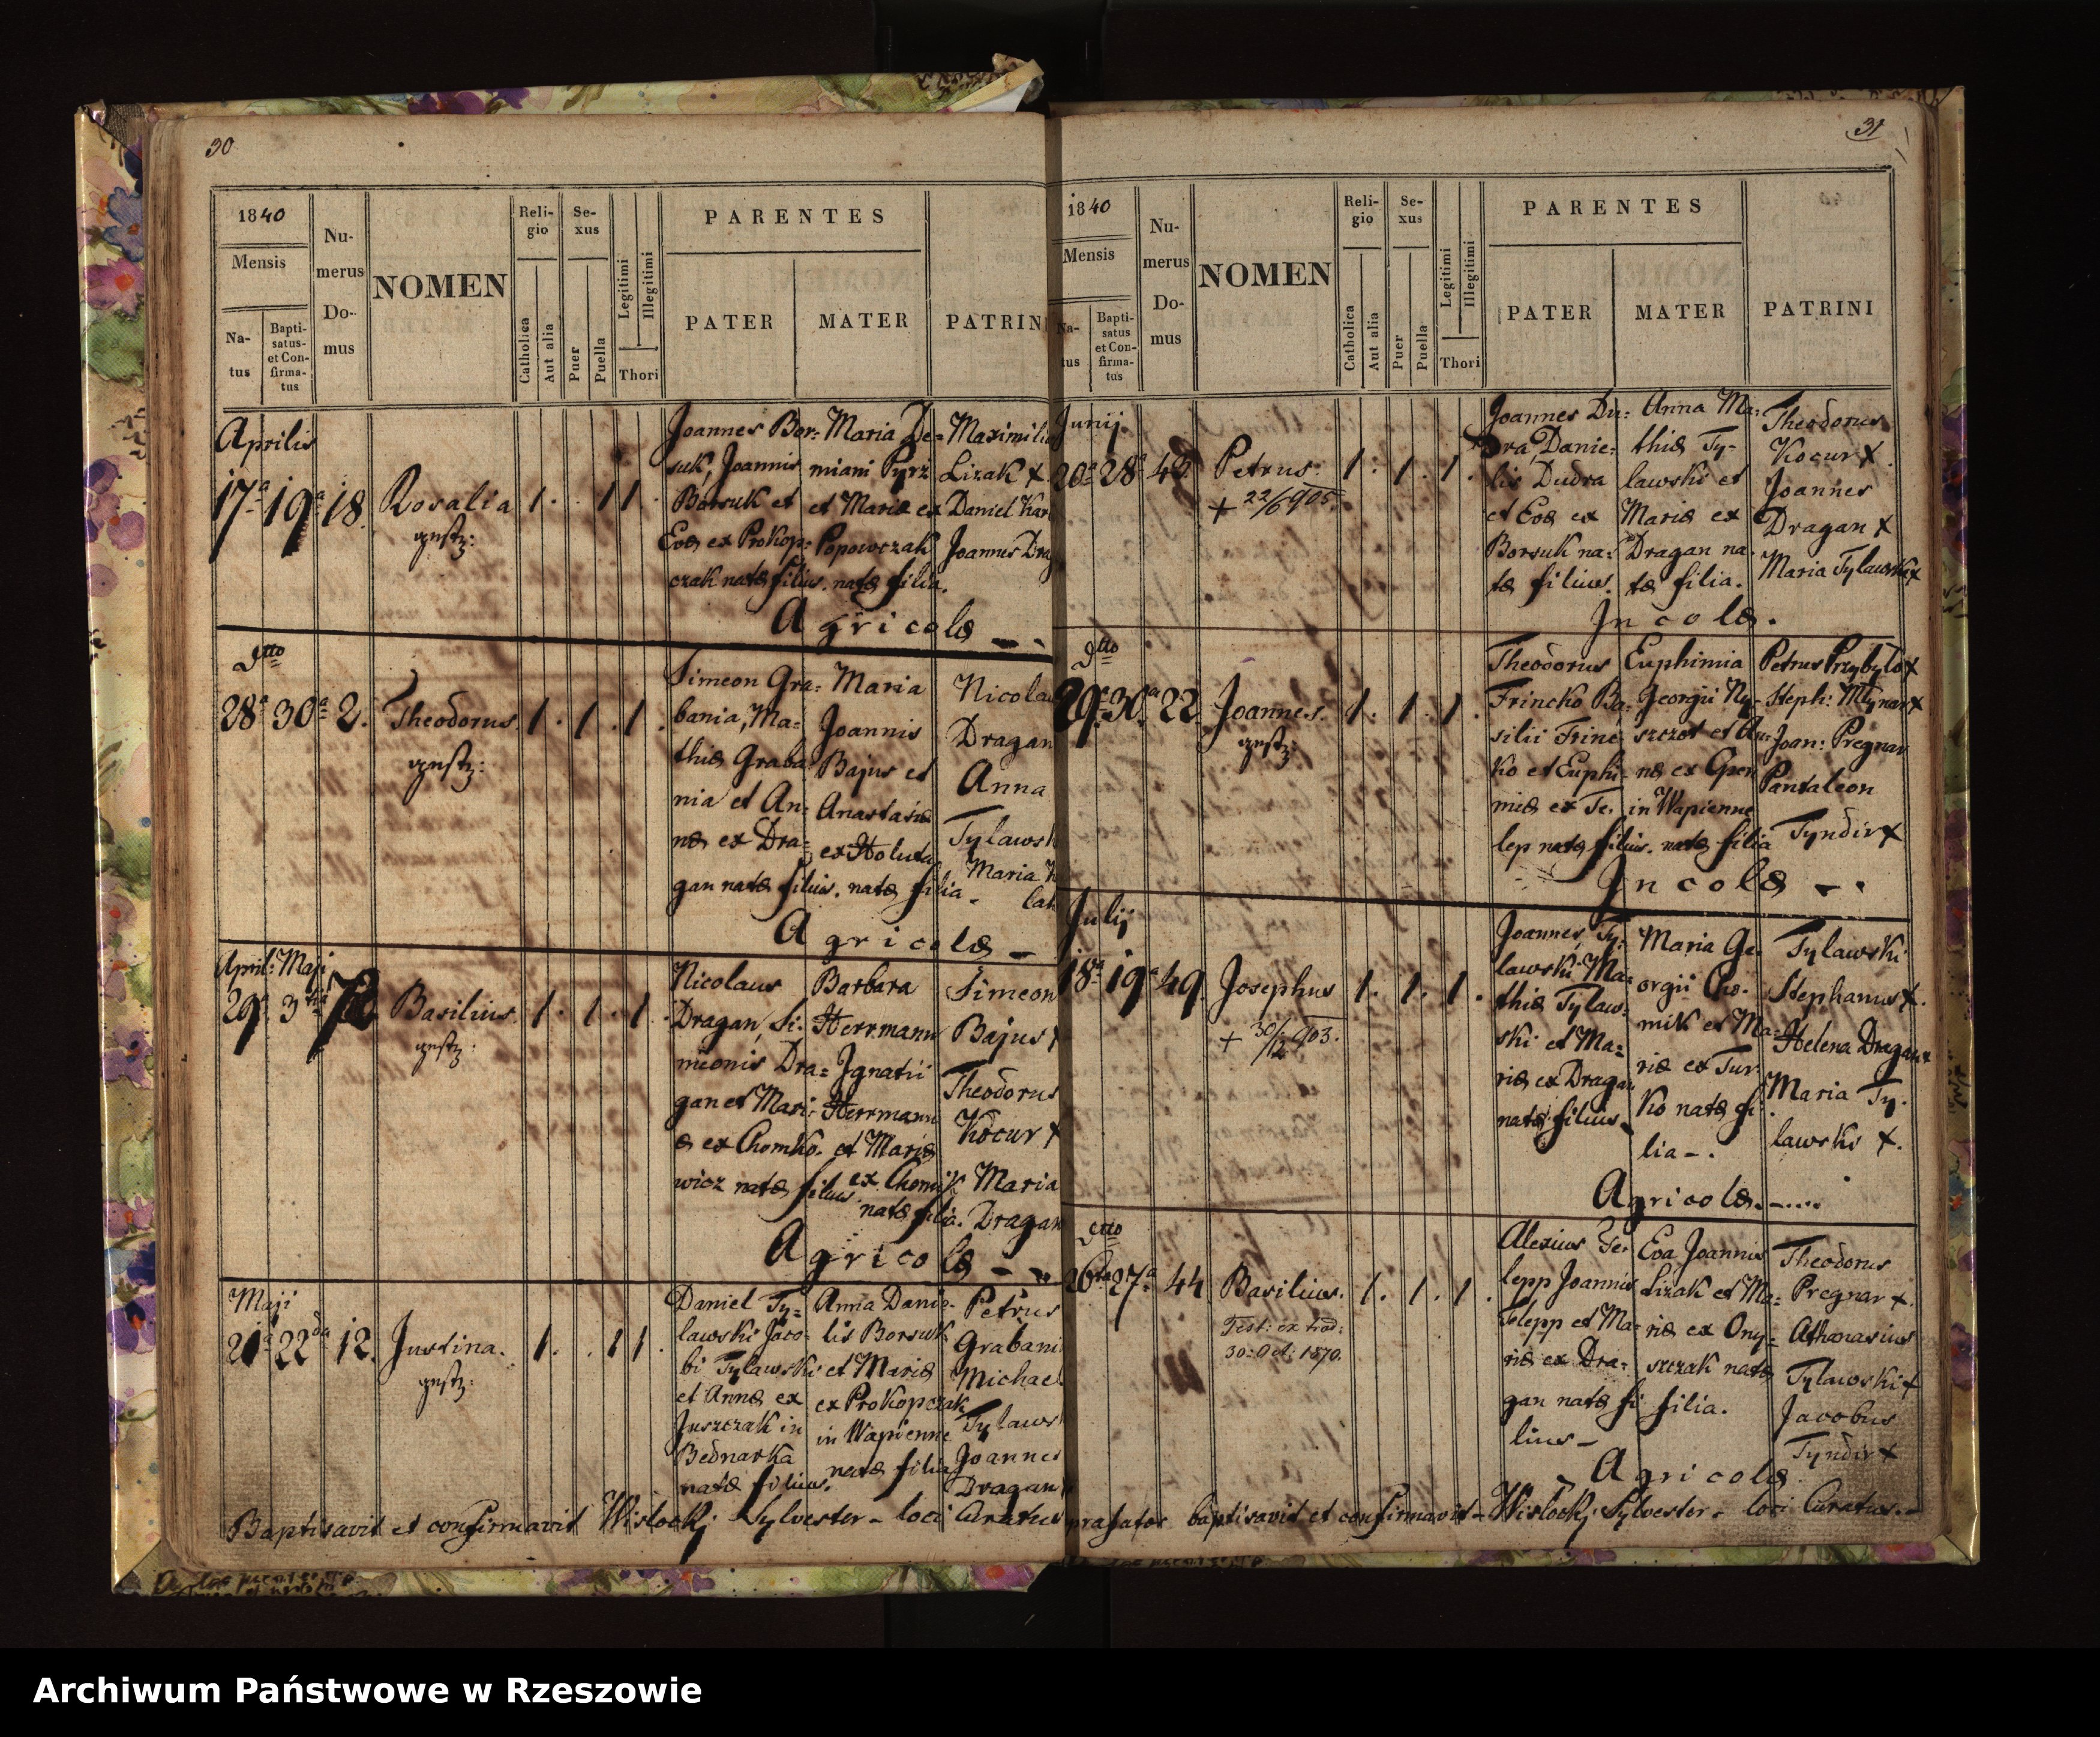 30
1840
Mensis
Na-
tus
Bapti-
satus-
et Con-
firma-
tus
Nu-
merus
Do-
mus
NOMEN
Reli-
gio
Catholica
Aut alia
Se-
xus
Puer
Puella
Legitimi
Illegitimi
Thori
PARENTES
PATER
MATER
PATRIN
Aprilis
17ª 19ª 18.
Rosalia
1. 1 1.
Joannes Bor=
suk, Joannis
Borsuk et
Evæ ex Prokop=
czak natæ filius.
Maria De=
miani Pyrz
et Mariæ ex
Popowczak
natæ filia.
Maximili
Lizak +
Daniel Kar
Joannes Dra
Agricolæ
Dtto
28ª 30ª 2.
Theodorus.
1. 1. 1.
Simeon Gra=
bania, Ma=
thiæ Graba
nia et An=
næ ex Dra=
gan natæ filius.
Maria
Joannis
Bajus et
Anastasiæ
ex Holuta
natæ filia.
Nicola
Dragan
Anna
Tylawsk
Maria
lak
Agricolæ
April: Maji
29ª 3tia
Basilius.
1. 1. 1.
Nicolaus
Dragan, Si=
meonis Dra=
gan et Mari=
æ ex Chomko=
wicz natæ filius.
Barbara
Herrmann
Ignatii
Herrmann
et Mariæ
ex Chomik
natæ filia.
Simeon
Bajus +
Theodorus
Kocur +
Maria
Dragan
Agricolæ
Maji
21ª 22da 12.
Justina.
1. 1 1.
Daniel Ty=
lawski Jaco=
bi Tylawski
et Annæ ex
Juszczak in
Bednarka
natæ filius.
Anna Danie=
lis Borsuk
et Mariæ
ex Prokopczak
in Wapienne
natæ filia
Petrus
Grabani
Michael
Tylaws
Joannes
Dragan
Baptisavit et confirmavit Wislockj Sylvester - loci Curatus
31
1840
Mensis
Na-
tus
Bapti-
satus
et Con-
firma-
tus
Nu-
merus
Do-
mus
NOMEN
Reli-
gio
Catholica
Aut alia
Se-
xus
Puer
Puella
Legitimi
Illegitimi
Thori
PARENTES
PATER
MATER
PATRINI
Junij.
20ª 28ª
Petrus.
+ 22/6 905.
1. 1. 1.
Joannes Du=
dra, Danie=
lis Dudra
et Evæ ex
Borsuk na=
tæ filius.
Anna Ma=
thiæ Ty-
lawski et
Mariæ ex
Dragan na
tæ filia.
Theodorus
Kocur +.
Joannes
Dragan +
Maria Tylawski +
Incolæ.
Dtto
29ª 30ª 22.
Joannes.
1. 1. 1.
Theodorus
Frincko Ba=
silii Frinc
ko et Euphi=
miæ ex Te=
lep natæ filius.
Euphimia
Georgii Ny-
szczot et An=
næ ex Gren
in Wapienne
natæ filia
Petrus Przybylo +
Steph: Mlynar +
Joan: Pregnar
Pantaleon
Tyndir +
Incolæ
Julij
18ª 19ª 49.
Josephus
+ 30/12 903.
1. 1. 1.
Joannes, Ty=
lawski Ma=
thiæ Tylaw=
ski et Ma=
riæ ex Dragan
natæ filius
Maria Ge=
orgii Cho-
mik et Ma=
riæ ex Tur=
ko natæ fi
lia -.
Tylawski
Stephanus +.
Helena Dragan +
Maria Ty.
lawski +.
Agricolæ.
Dtto
26ta 27ª 44.
Basilius.
Test: ex trad:
30: Oct: 1870.
1. 1. 1.
Alexius Te=
lepp Joannis
Telepp et Ma=
riæ ex Dra=
gan natæ fi
lius -
Eva Joannis
Lizak et Ma=
riæ ex Ony=
szczak natæ
filia.
Theodorus
Pregnar +.
Athanasius
Tylawski +
Jacobus
Tyndir +
Agricolæ
prafatos baptisavit et confirmavit - Wislockj Sylvester - loci Curatus. -
Archiwum Państwowe w Rzeszowie